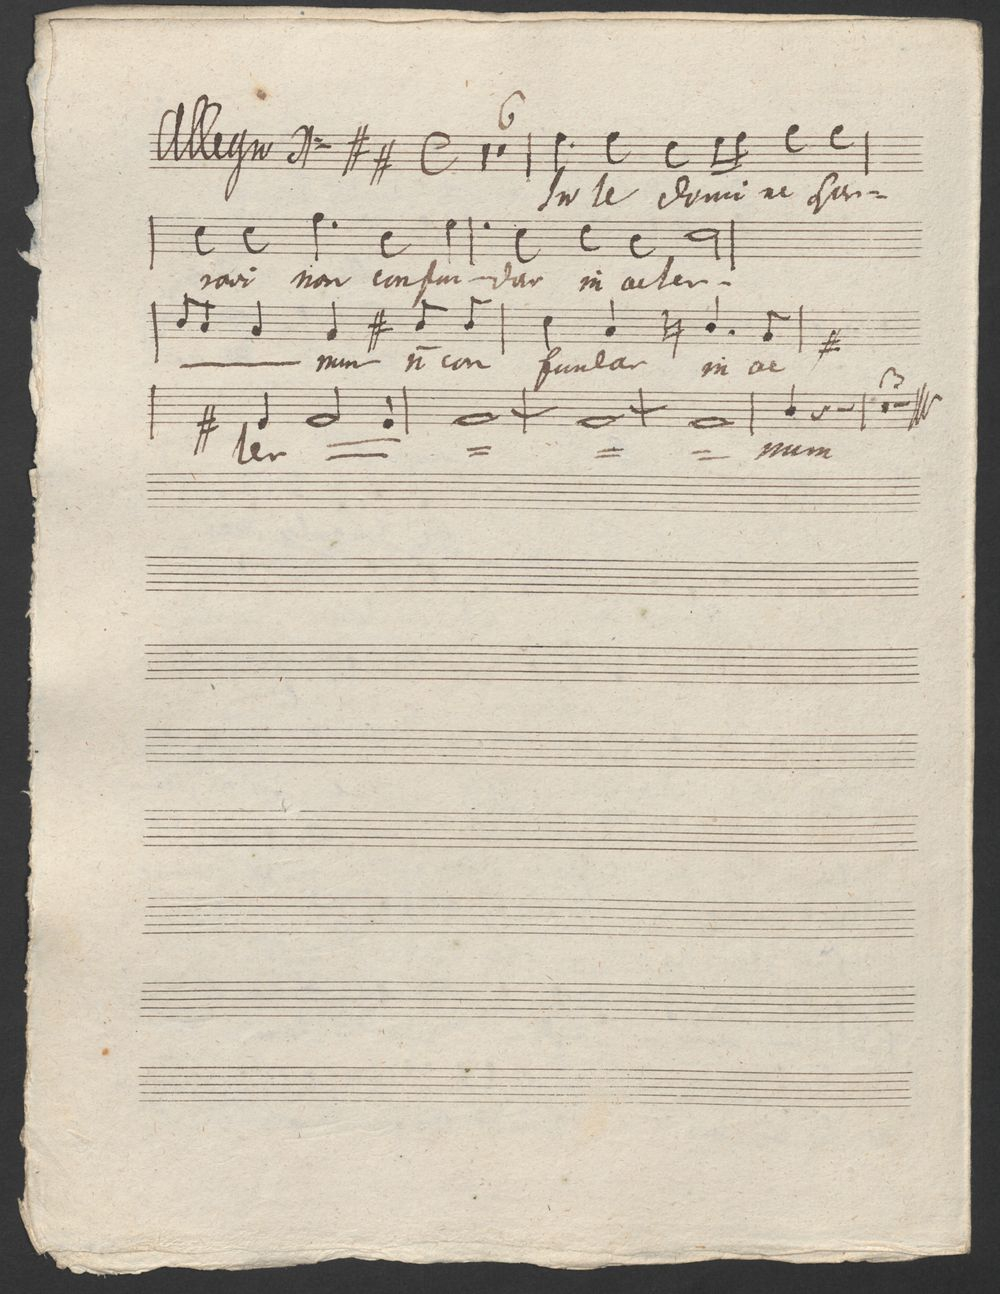 Allegro 6
In te domi ne spe-
ravi non confun-dar in aeter-
num n̄ con fundar in ae
ter num
3